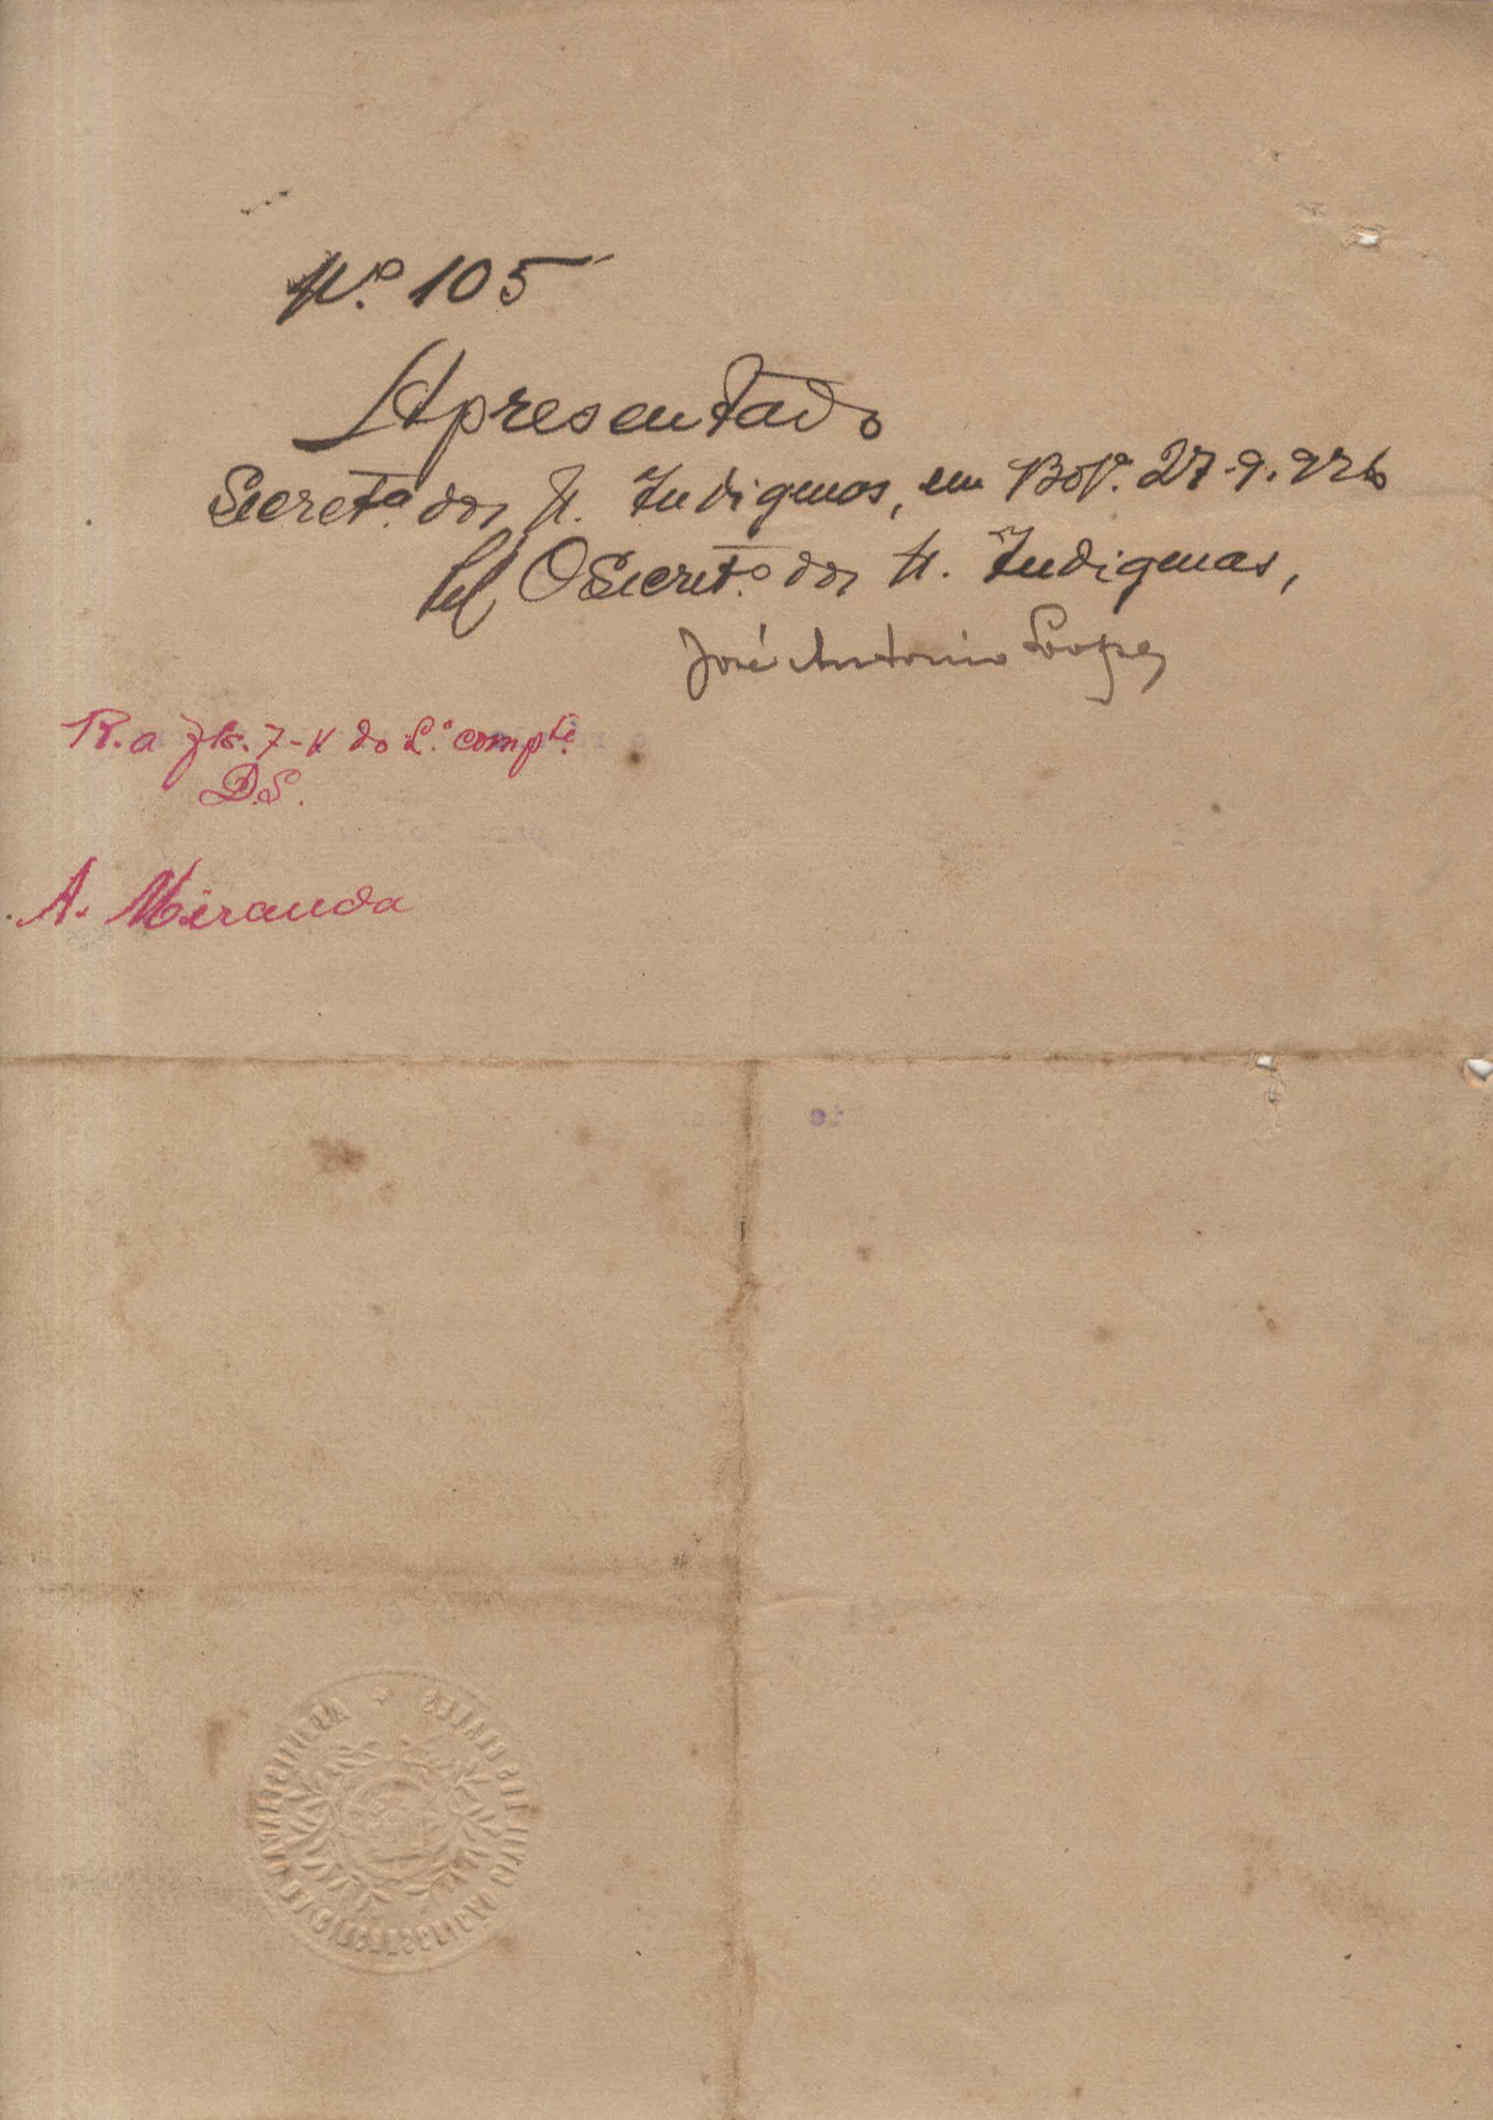 Nº 105
Apresentado
Secretª dos N. Indigenas, em Bolª. 27-9-926
O Secretº dos N. Indigenas,
José Antonio Lopes
R. a fls. 7-V do L.º compte.
D.S.
A. Miranda